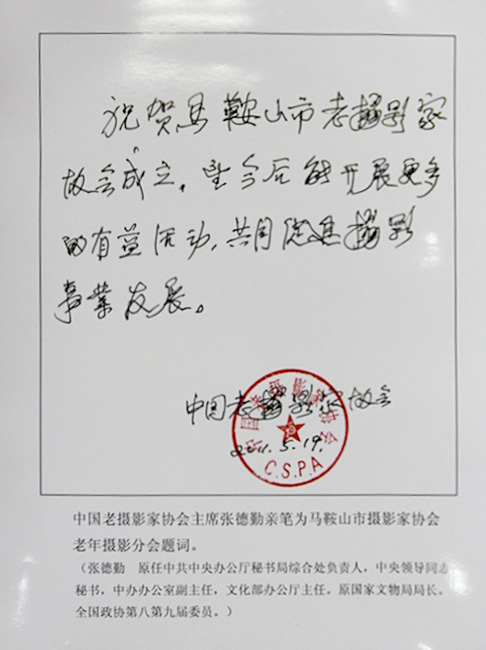 祝贺马鞍山市老摄影家
协会成立，望今后能开展更多
的有益活动，共同促进摄影
事业发展。
中国老摄影家协会
2011.5.19.
中国老摄影家协会
C.S.P.A
中国老摄影家协会主席张德勤亲笔为马鞍山市摄影家协会
老年摄影分会题词。
（张德勤　原任中共中央办公厅秘书局综合处负责人，中央领导同志
秘书，中办办公室副主任，文化部办公厅主任。原国家文物局局长。
全国政协第八第九届委员。）